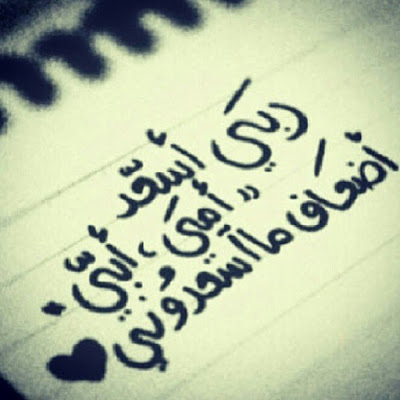 ربيَ أسعد
” أميَ ، أبيّ “
أضعَاف ما أسعدُوني